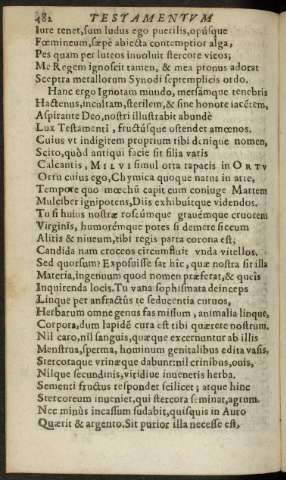 482 TESTAMENTVM
Iure tenet, sum ludus ego puerilis, opúsque
Fœmineum, sæpè abiecta contemptior alga,
Pes quam per luteos inuoluit stercore vicos;
Me Regem ignoscit tamen, & mea pronus adorat
Sceptra metallorum Synodi septemplicis ordo.
Hanc ergo Ignotam mundo, mersámque tenebris
Hactenus, incultam, sterilem, & sine honote iacētem,
Aspirante Deo, nostri illustrabit abundè
Lux Testamenti, fructúsque ostendet amœnos.
Cuius vt indigitem proprium tibi denique nomen,
Scito, quòd antiqui facie sit filia vatis
Calcantis, MILVI simul orta rapacis in ORTV
Ortu cuius ego, Chymica quoque natus in arte,
Tempore quo mœchū capit cum coniuge Martem
Mulciber ignipotens, Diis exhibuitque videndos.
Tu si huius nostræ roscúmque grauémque cruorem
Virginis, humorémque potes si demere siccum
Alitis & niueum, tibi regis parta corona est;
Candida nam croceos circumfluit vnda vitellos.
Sed quorsum? Exposuisse sat hic, quæ nostra sit illa
Materia, ingenium quod nomen præferat, & queis
Inquirenda locis. Tu vana sophismata deinceps
Linque per anfractus te seducentia curuos,
Herbarum omne genus fac missum, animalia linque,
Corpora, dum lapidē cura est tibi quærere nostrum.
Nil caro, nil sanguis, quæque excernuntur ab illis
Menstrua, sperma, hominum genitalibus edita vasis,
Stercoraque vrinæque dabunt: nil crinibus, ouis,
Nilque secundinis, viridiue inueneris herba.
Sementi fructus respondet scilicet; atque hinc
Stercoreum inueniet, qui stercora seminat, agrum.
Nec minùs incassum sudabit, quisquis in Auro
Quærit & argento. Sit purior illa necesse est,